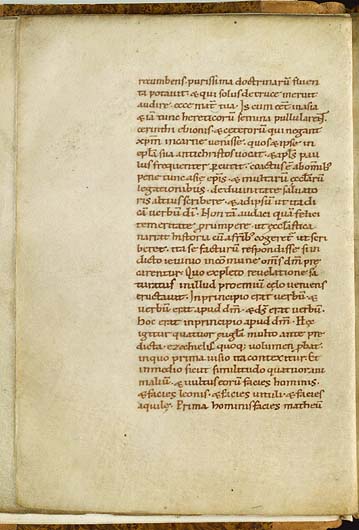 recumbens· purissima doctrinarū fluen
ta potauit· & qui solus de cruce meruit
audire· ecce mat̄ tua· Is cum eēt in asia
& iā tunc hereticorū semina pullularent̄
cerinthi ebionis· & ceterorū qui negant
xp̄m in carne uenisse· quos & ipse in
ep̄la sua antichristos uocat· & apl̄s pau
lus frequenter p̄cutit· coactus ē ab omib;
pene tunc asię ep̄is & multarū ecclarū
legationibus· de diuinitate saluato
ris altius scribere· & ad ipsū ut ita di
cā uerbū dī· Non tā audaci quā felici
temeritate prūmpere· ut ecclāstica
narrat historia cū a fr̄ib; cogeretᷣ ut scri
beret· ita se facturū respondisse si in
dicto ieiunio in cōmune om̄s dm̄ pre
carentur· Quo expleto reuelatione sa
turatus in illud proemiū cęlo ueniens
eructauit· In principio erat uerbū· &
uerbū erat apud dm̄· & d̄s erat uerbū·
hoc erat in principio apud dm̄· Hęc
igitur quatuor euglia multo ante pre
dicta· ezechielis quoq; uolumen p̄bat·
in quo prima uisio ita contexitur· Et
in medio sicut similitudo quatuor ani
maliū· & uultus eorū facies hominis·
& facies leonis· & facies uituli· & facies
aquilę· Prima hominis facies matheū